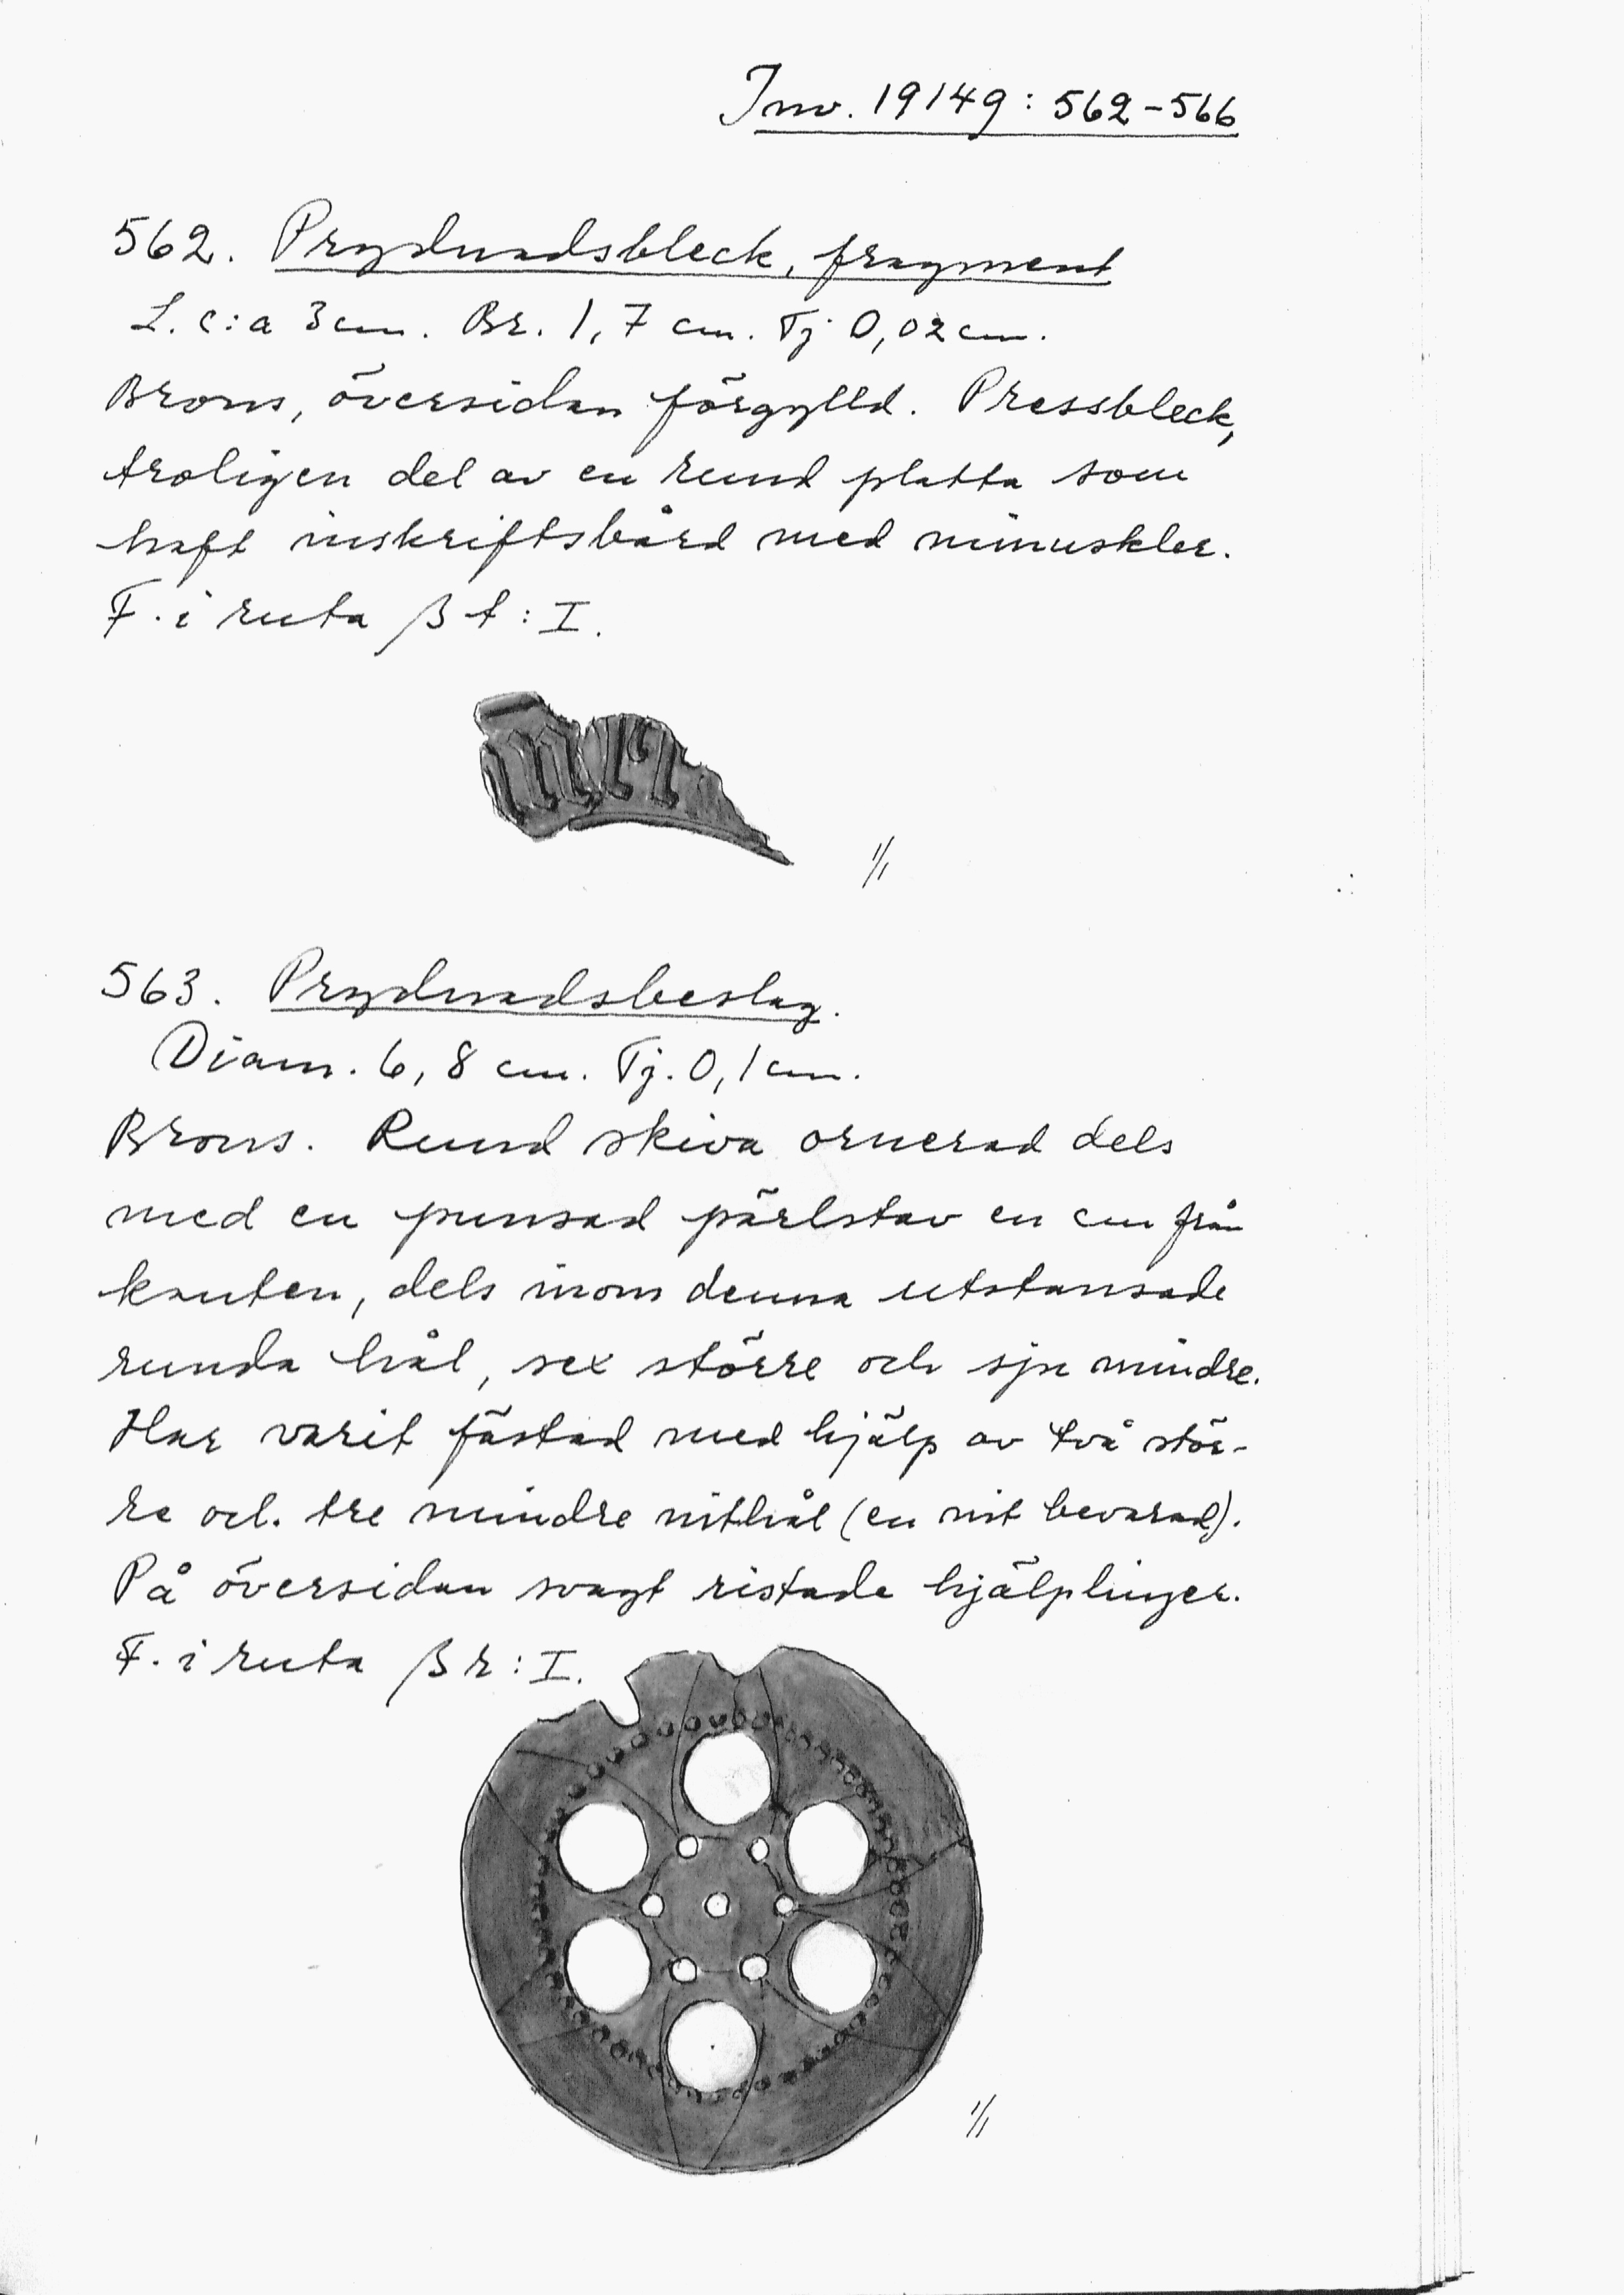 Inv. 19149: 562-566
562. Prydnadsbleck, fragment
L. c:a 3 cm. Br. 1,7 cm. Tj 0,02 cm.
Brons, översidan förgylld. Pressbleck,
troligen del av en rund platta som
haft inskriftsbård med minuskler.
F. i ruta β t: I.
1/1
563. Prydnadsbeslag.
Diam. 6,8 cm. Tj. 0,1 cm.
Brons. Rund skiva ornerad dels
med en punsad pärlstav en cm från
kanten, dels inom denna utstansade
runda hål, sex större och sju mindre.
Har varit fästad med hjälp av två stör-
re och tre mindre nithål (en nit bevarad).
På översidan svagt ristade hjälplinjer.
F. i ruta β r: I.
1/1